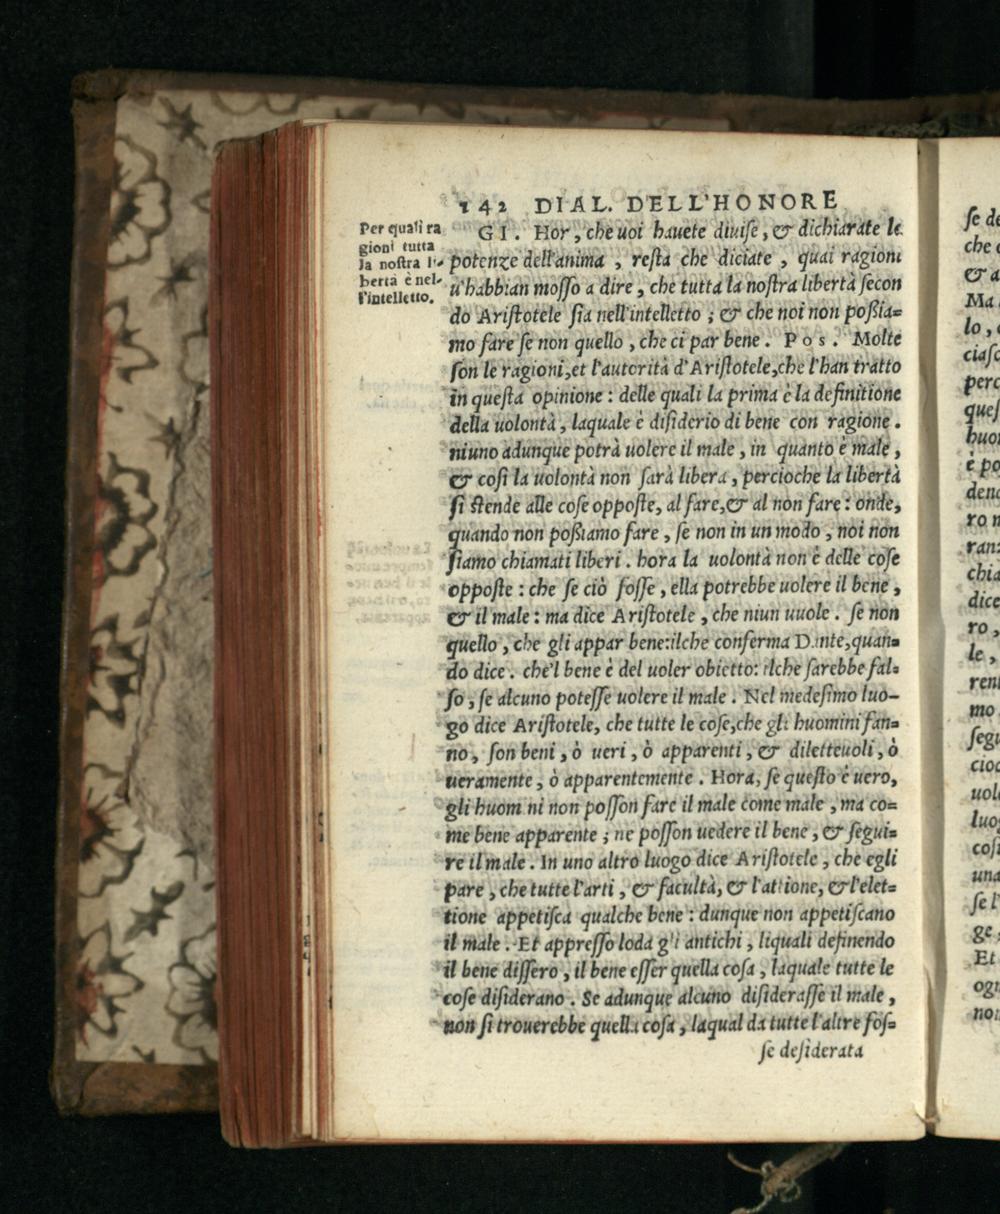 142 DIAL. DELL'HONORE
Per quali ra
gioni tutta
la nostra li-
bertà è nel-
l'intelletto.
GI. Hor, che uoi hauete diuiſe, & dichiarate le
potenze dell'anima, reſta che diciate, quai ragioni
u'habbian moſſo a dire, che tutta la noſtra libertà ſecon
do Ariſtotele ſia nell'intelletto; & che noi non poßia=
mo fare ſe non quello, che ci par bene. Pos. Molte
ſon le ragioni,et l'autorità d'Ariſtotele,che l'han tratto
in queſta opinione: delle quali la prima è la definitione
della uolontà, laquale è diſiderio di bene con ragione.
niuno adunque potrà uolere il male, in quanto è male,
& coſi la uolontà non ſarà libera, percioche la libertà
ſi ſtende alle coſe oppoſte, al fare,& al non fare: onde,
quando non poßiamo fare, ſe non in un modo, noi non
ſiamo chiamati liberi. hora la uolontà non è delle coſe
oppoſte: che ſe ciò foſſe, ella potrebbe uolere il bene,
& il male: ma dice Ariſtotele, che niun uuole. ſe non
quello, che gli appar bene:ilche conferma Dante,quan=
do dice. che'l bene è del uoler obietto: ilche ſarebbe fal=
ſo, ſe alcuno poteſſe uolere il male. Nel medeſimo luo-
go dice Ariſtotele, che tutte le coſe,che gli huomini fan=
no, ſon beni, ò ueri, ò apparenti, & diletteuoli, ò
ueramente, ò apparentemente. Hora, ſe queſto è uero,
gli huom ni non poſſon fare il male come male, ma co=
me bene apparente; ne poſſon uedere il bene, & ſegui=
re il male. In uno altro luogo dice Ariſtotele, che egli
pare, che tutte l'arti, & facultà, & l'attione, & l'elet=
tione appetiſca qualche bene: dunque non appetiſcano
il male. Et appreſſo loda gli antichi, liquali definendo
il bene diſſero, il bene eſſer quella coſa, laquale tutte le
coſe diſiderano. Se adunque alcuno diſideraſſe il male,
non ſi trouerebbe quella coſa, laqual da tutte l'altre foſ=
ſe deſiderata